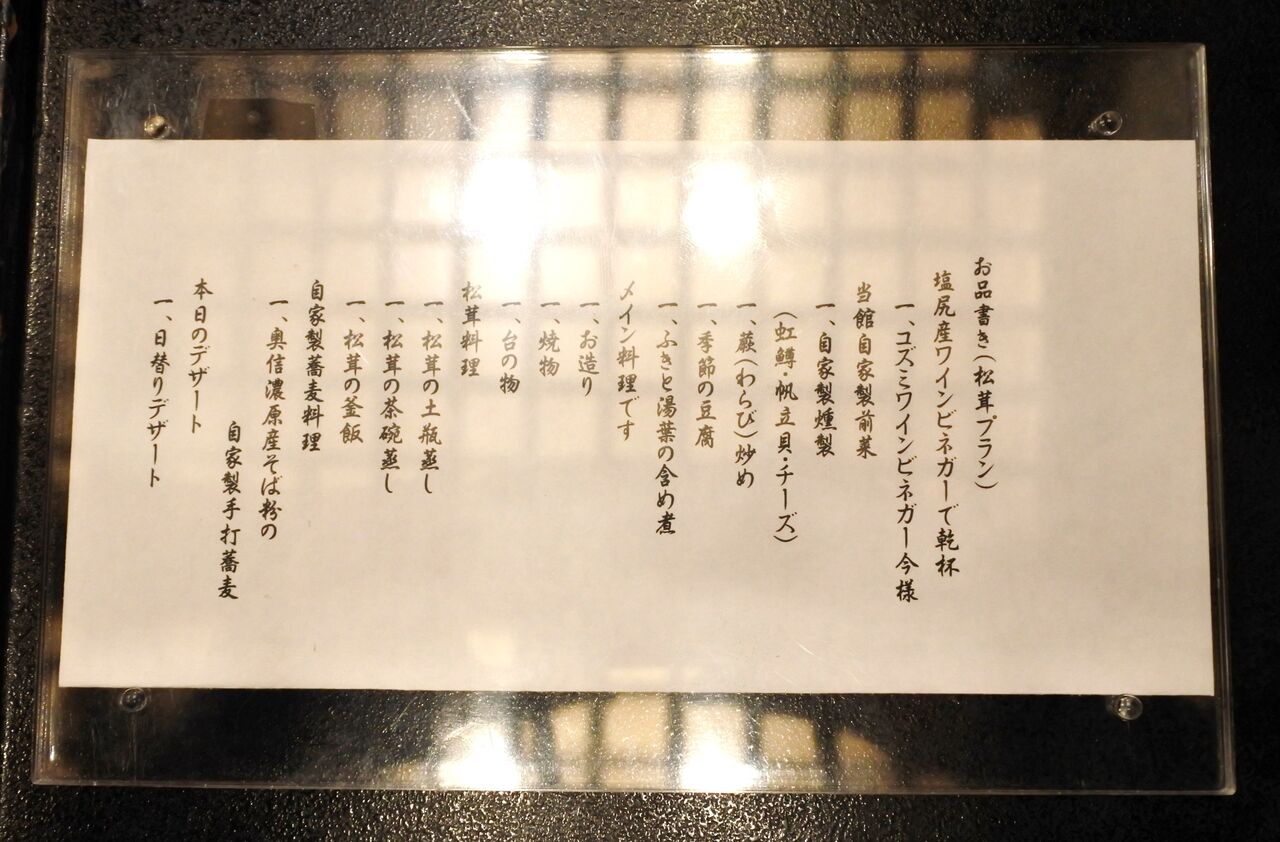 お品書き(松茸プラン)
塩尻産ワインビネガーで乾杯
一、コズミワインビネガー今様
当館自家製前菜
一、自家製燻製
(虹鱒・帆立貝・チーズ)
一、蕨(わらび)炒め
一、季節の豆腐
一、ふきと湯葉の含め煮
メイン料理です
一、お造り
一、焼物
一、台の物
松茸料理
一、松茸の土瓶蒸し
一、松茸の茶碗蒸し
一、松茸の釜飯
自家製蕎麦料理
一、奥信濃原産そば粉の
自家製手打蕎麦
本日のデザート
一、日替りデザート